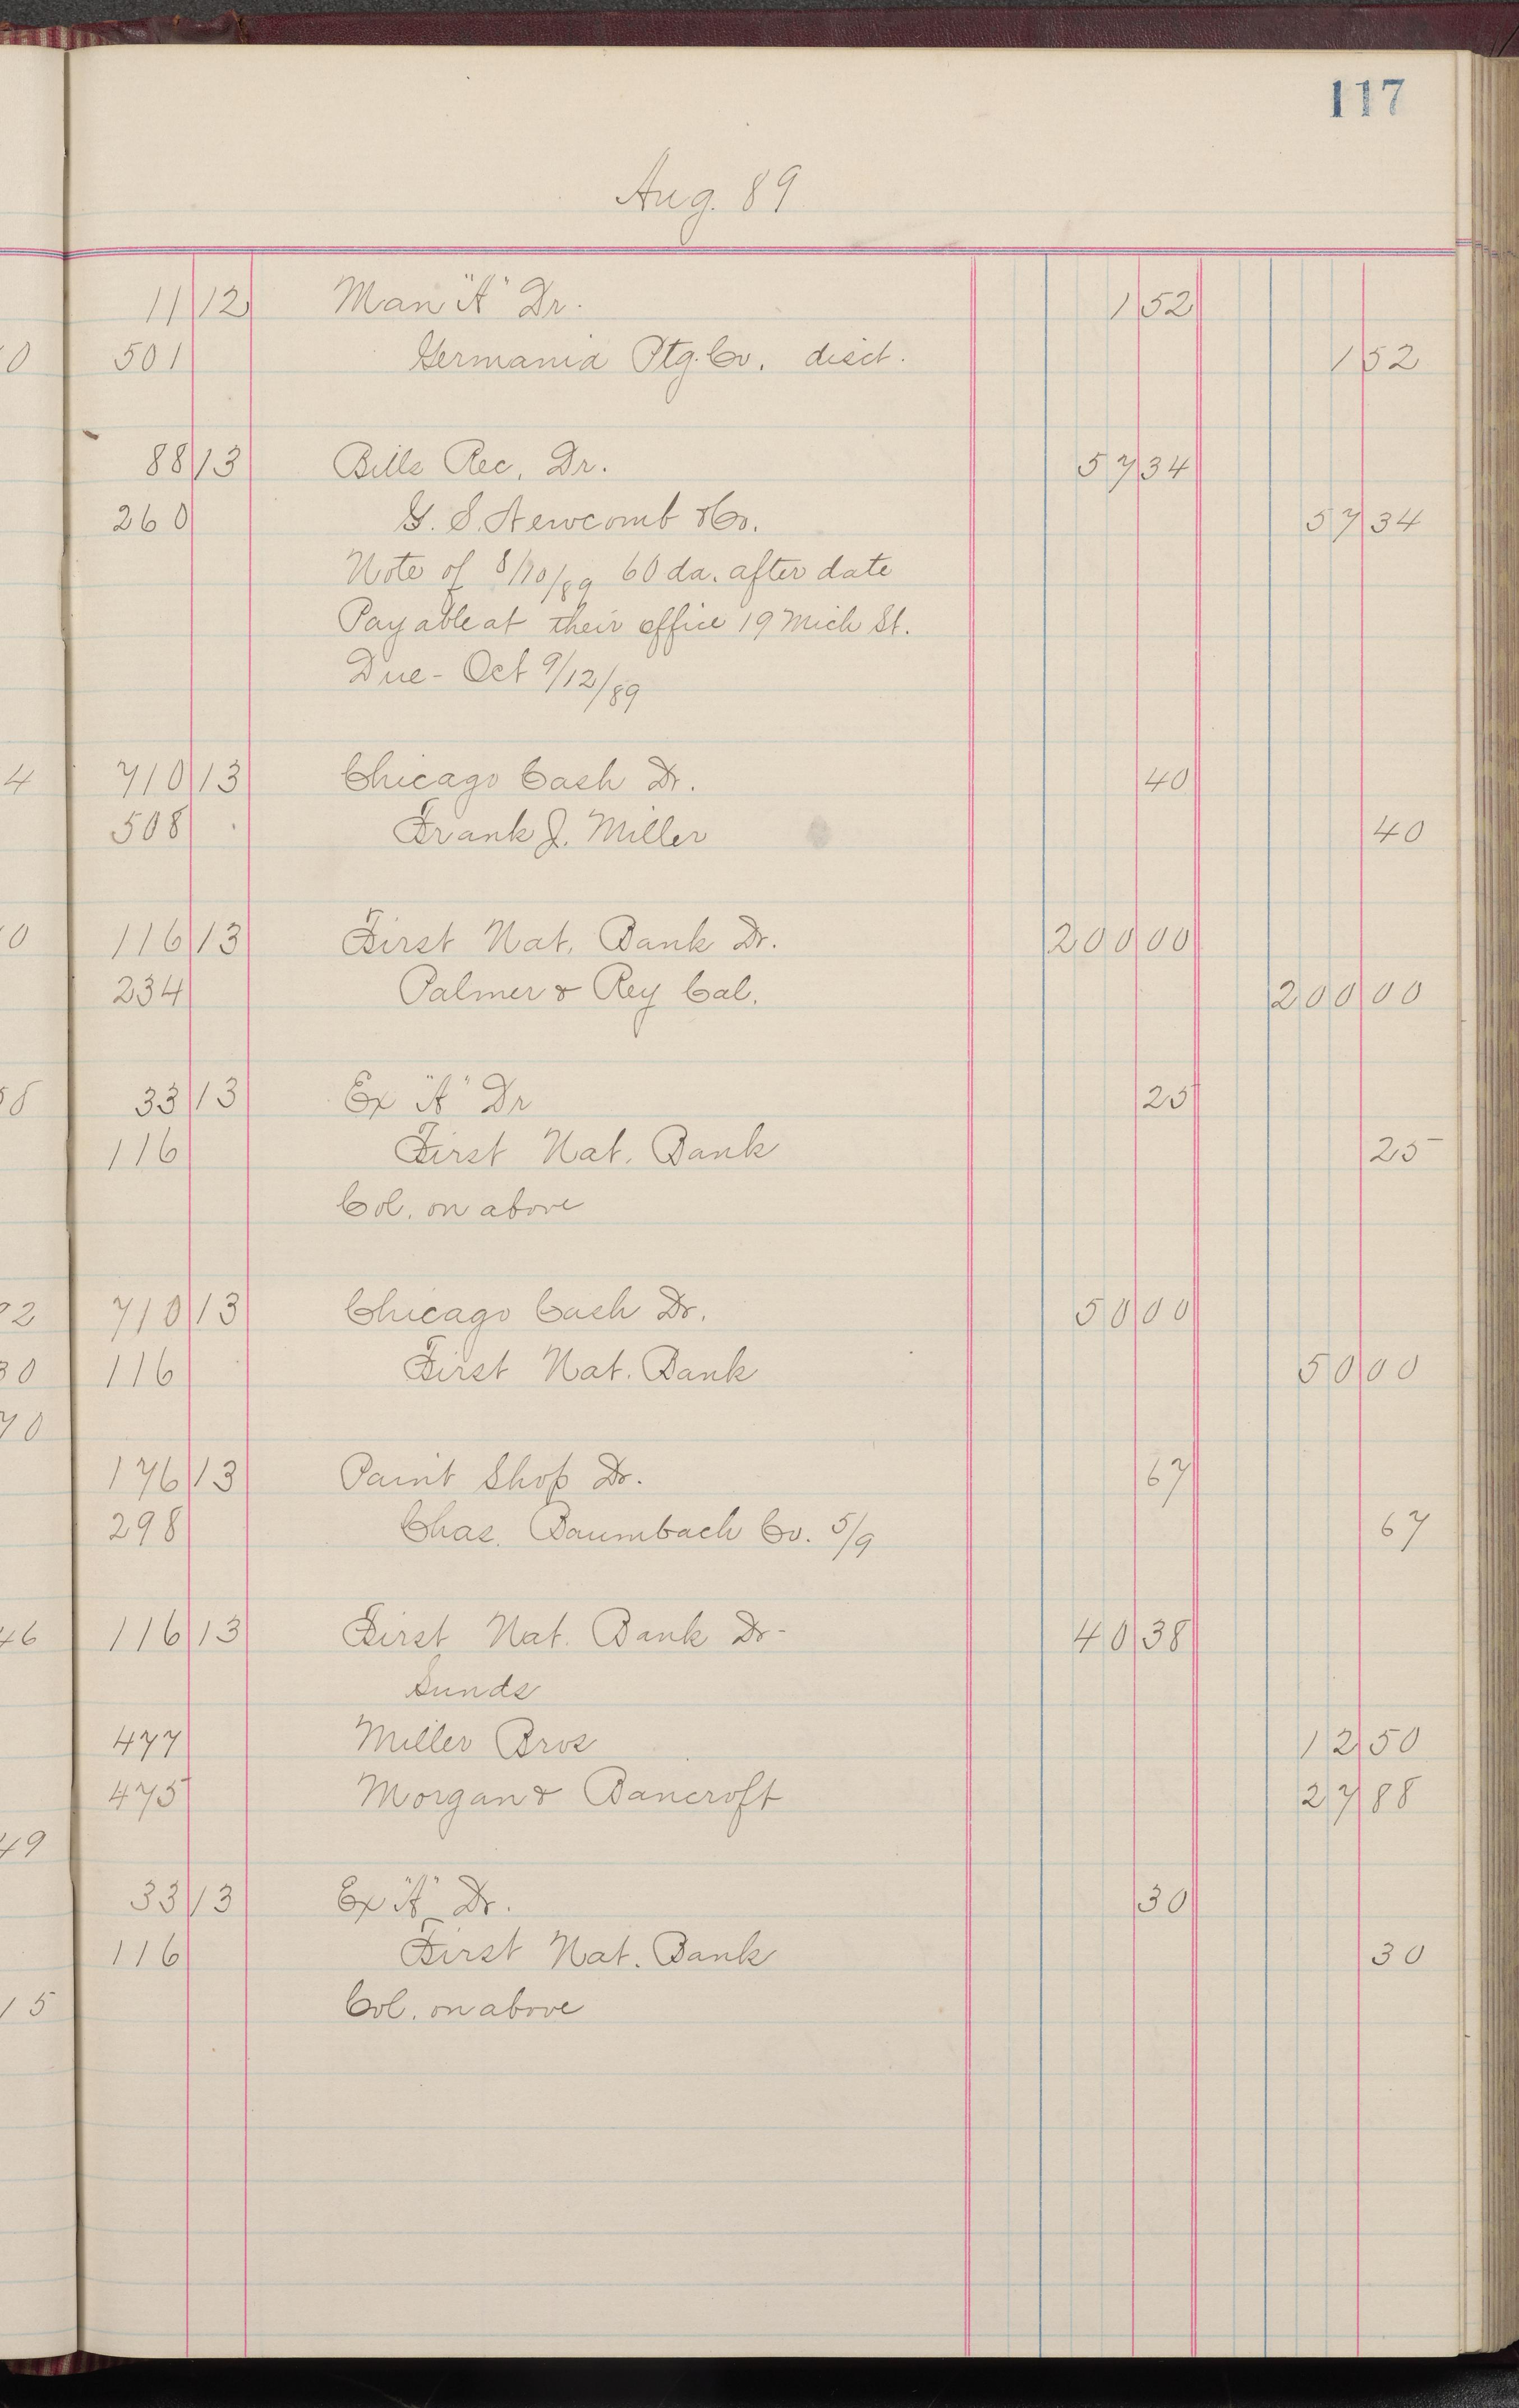 117
Aug. 89
11 12 Man "A" Dr. 1 52
501 Germania Ptg. Co. disct. 1 52
88 13 Bills Rec. Dr. 57 34
260 G. S. Newcomb & Co. 57 34
Note of 8/10/89 60 da. after date
Payable at their office 19 Mich St.
Due - Oct 9/12/89
710 13 Chicago Cash Dr. 40
508 Frank J. Miller 40
116 13 First Nat. Bank Dr. 200 00
234 Palmer & Rey Cal. 200 00
33 13 Ex "A" Dr 25
116 First Nat. Bank 25
Col. on above
710 13 Chicago Cash Dr. 50 00
116 First Nat. Bank 50 00
176 13 Paint Shop Dr. 67
298 Chas. Baumbach Co. 5/9 67
116 13 First Nat. Bank Dr- 40 38
Sunds
477 Miller Bros 12 50
475 Morgan & Bancroft 27 88
33 13 Ex "A" Dr. 30
116 First Nat. Bank 30
Col. on above